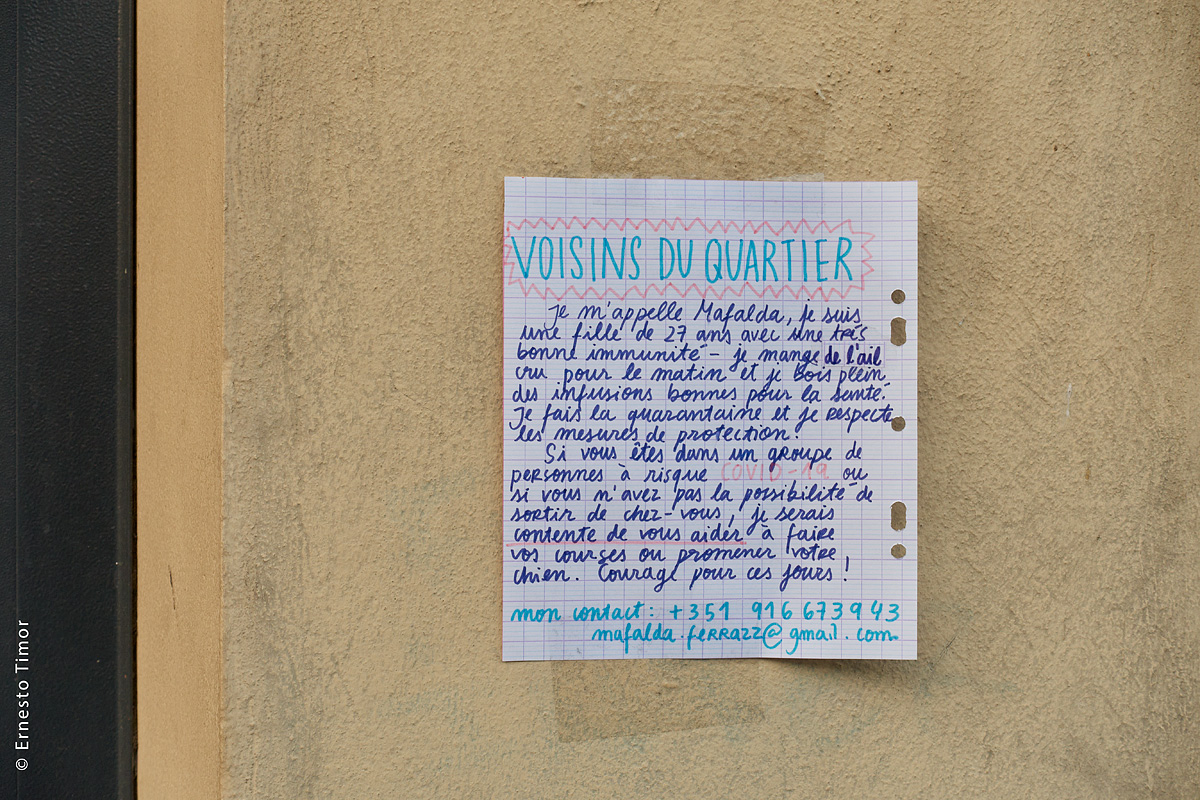 VOISINS DU QUARTIER
Je m'appelle Mafalda, je suis
une fille de 27 ans avec une très
bonne immunité - je mange de l'ail
cru pour le matin et je bois plein
des infusions bonnes pour la santé.
Je fais la quarantaine et je respecte
les mesures de protection.
Si vous êtes dans un groupe de
personnes à risque COVID-19 ou
si vous n'avez pas la possibilité de
sortir de chez-vous, je serais
contente de vous aider à faire
vos courses ou promener votre
chien. Courage pour ces jours !
mon contact : +351 916 673 943
mafalda.ferrazz@gmail.com
© Ernesto Timor